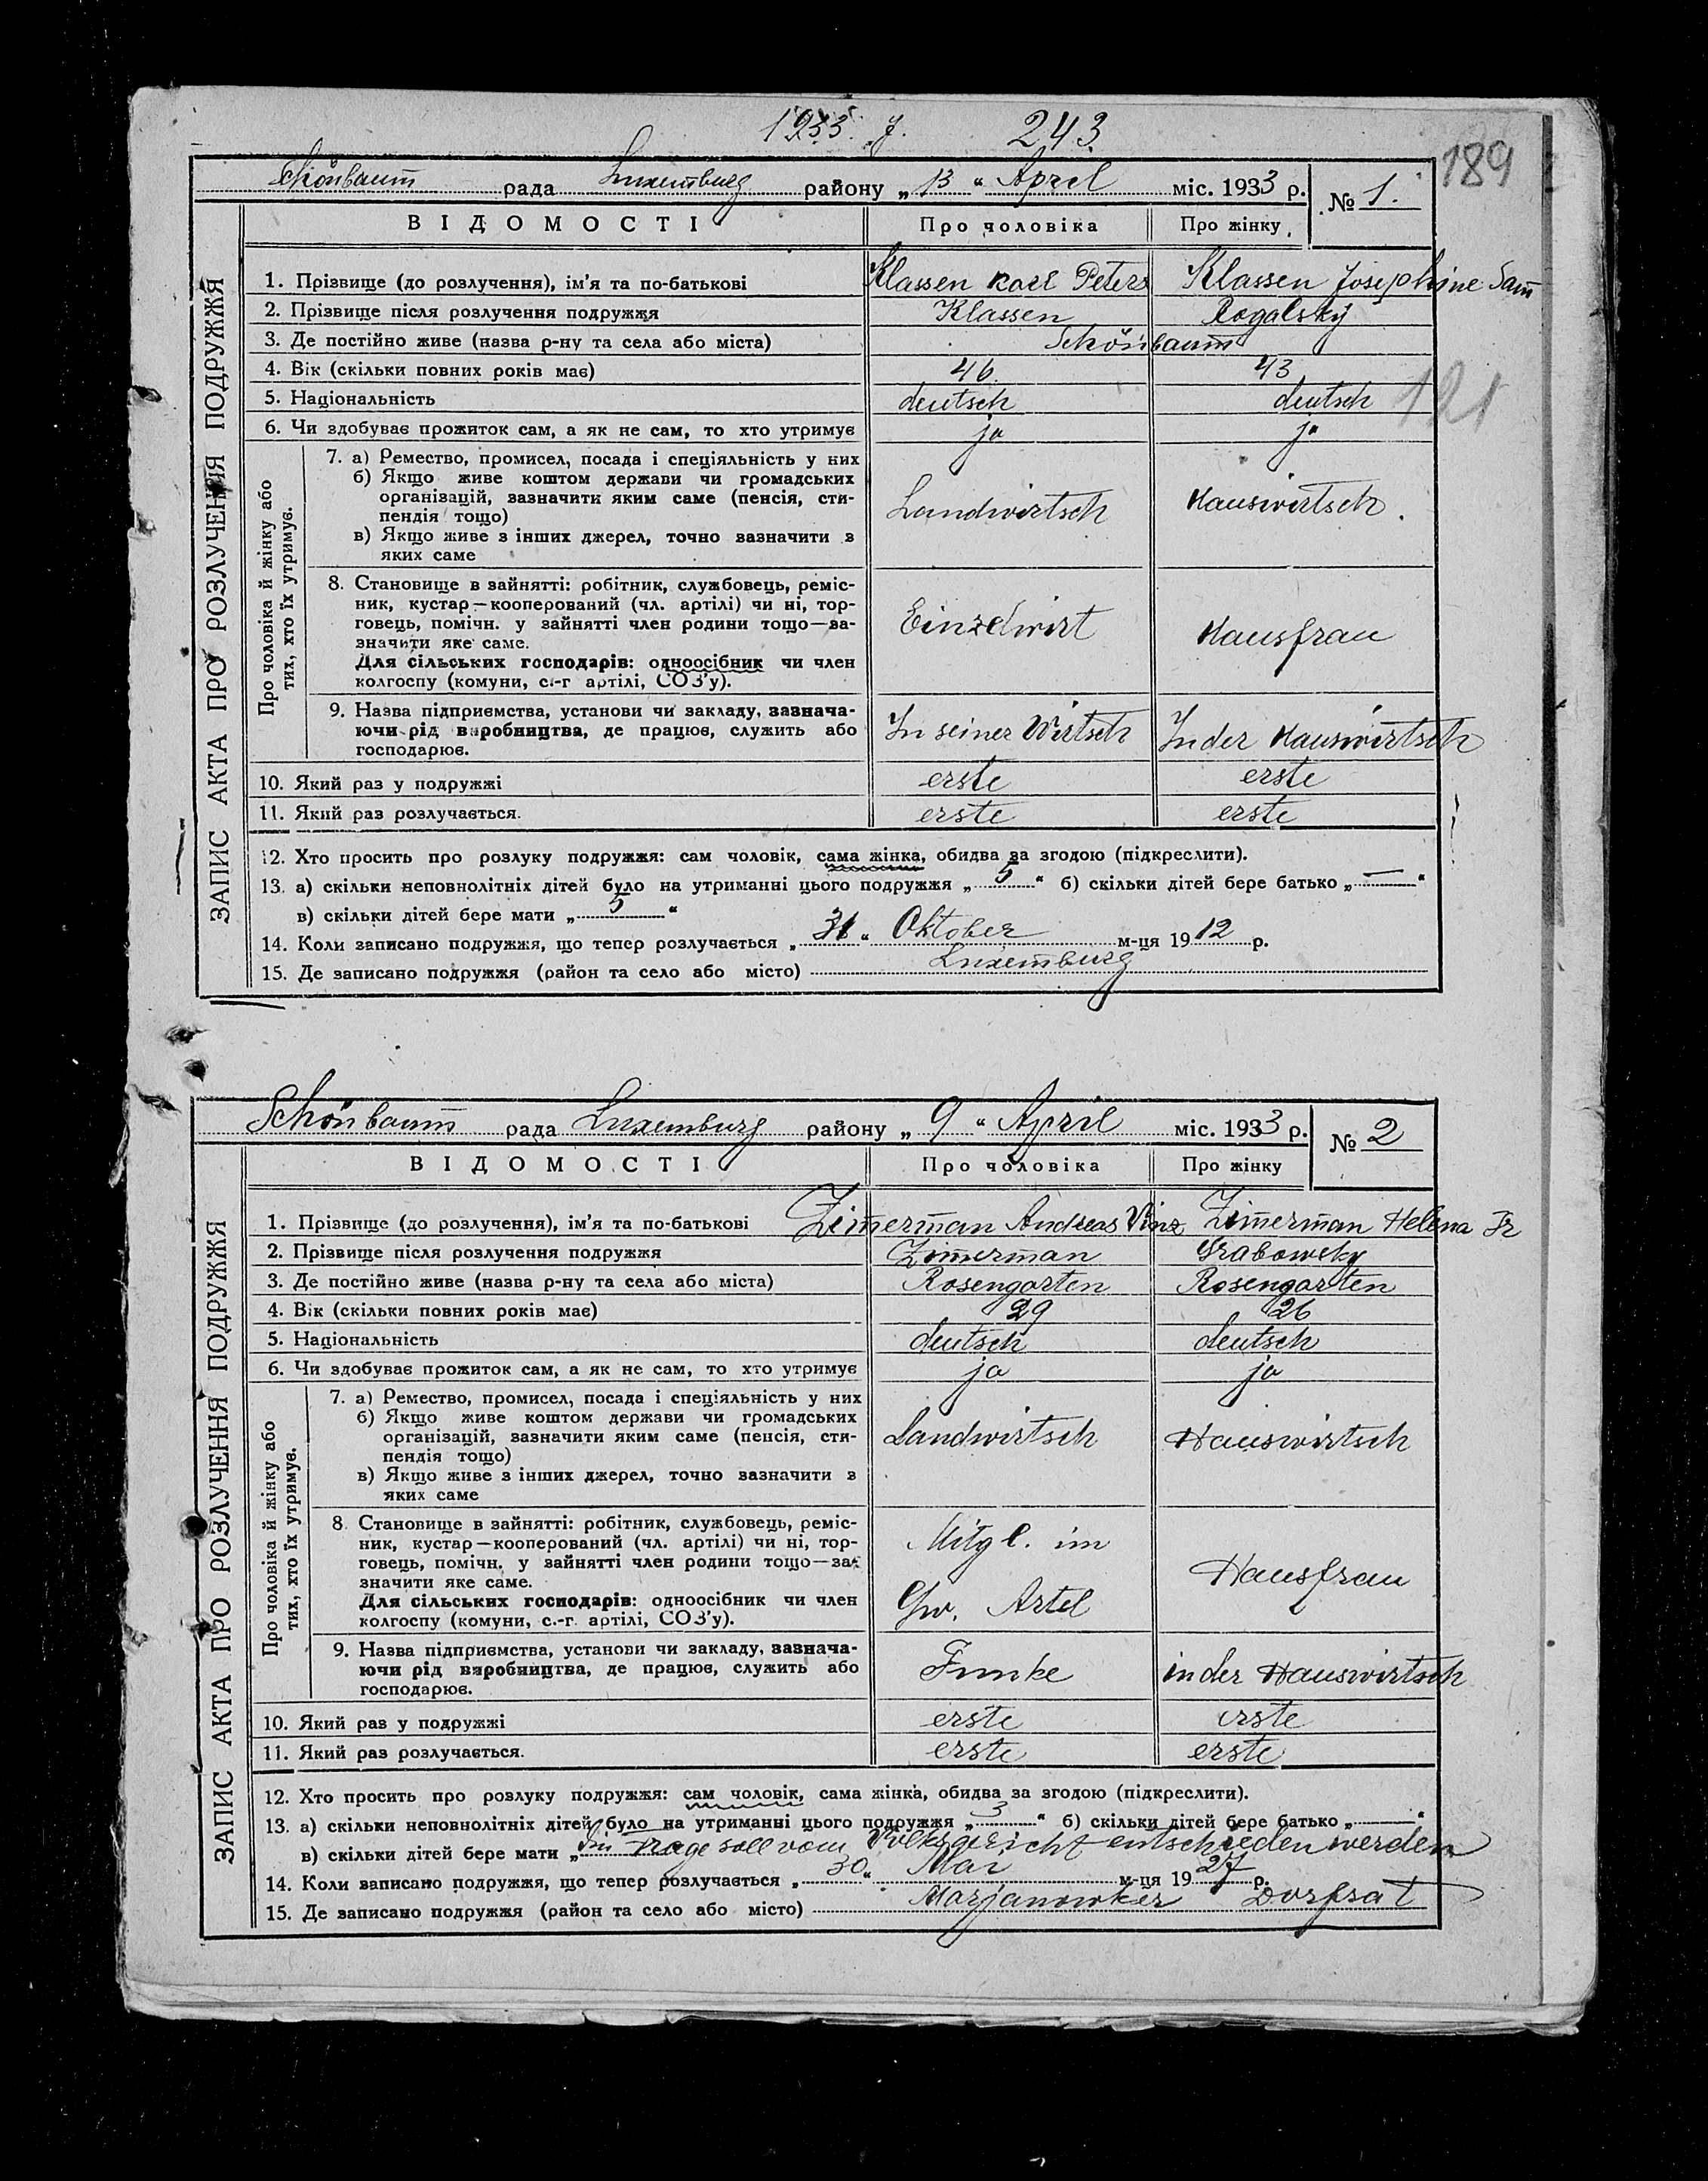 1933. J. 243.
189
Schönbaum рада Luxemburg району „ 13 “ April міс. 1933 р. № 1.
ВІДОМОСТІ Про чоловіка Про жінку
ЗАПИС АКТА ПРО РОЗЛУЧЕННЯ ПОДРУЖЖЯ
1. Прізвище (до розлучення), ім'я та по-батькові Klassen Karl Peters Klassen Josephine Sam
2. Прізвище після розлучення подружжя Klassen Rogalský
3. Де постійно живе (назва р-ну та села або міста) Schönbaum
4. Вік (скільки повних років має) 46. 43
121
5. Національність deutsch deutsch
6. Чи здобуває прожиток сам, а як не сам, то хто утримує ja ja
Про чоловіка й жінку або
тих, хто їх утримує.
7. а) Ремество, промисел, посада і спеціяльність у них
б) Якщо живе коштом держави чи громадських
організацій, зазначити яким саме (пенсія, сти-
пендія тощо) Landwirtsch Hauswirtsch.
в) Якщо живе з інших джерел, точно зазначити з
яких саме
8. Становище в зайнятті: робітник, службовець, реміс-
ник, кустар—кооперований (чл. артілі) чи ні, тор-
говець, помічн. у зайнятті член родини тощо—за- Einzelwirt Hausfrau
значити яке саме.
Для сільських господарів: одноосібник чи член
колгоспу (комуни, с.-г артілі, СОЗ'у).
9. Назва підприємства, установи чи закладу, зазнача-
ючи рід виробництва, де працює, служить або In seiner Wirtsch In der Hauswirtsch
господарює.
10. Який раз у подружжі erste erste
11. Який раз розлучається. erste erste
12. Хто просить про розлуку подружжя: сам чоловік, сама жінка, обидва за згодою (підкреслити).
13. а) скільки неповнолітніх дітей було на утриманні цього подружжя „ 5 “ б) скільки дітей бере батько „ — “
в) скільки дітей бере мати „ 5 “
14. Коли записано подружжя, що тепер розлучається „ 31 “ Oktober м-ця 1912 р.
15. Де записано подружжя (район та село або місто) Luxemburg
Schönbaum рада Luxemburg району „ 9 “ April міс. 1933 р. № 2
ВІДОМОСТІ Про чоловіка Про жінку
ЗАПИС АКТА ПРО РОЗЛУЧЕННЯ ПОДРУЖЖЯ
1. Прізвище (до розлучення), ім'я та по-батькові Zimerman Andreas Vinz Zimerman Helena Fr
2. Прізвище після розлучення подружжя Zimerman Grabowsky
3. Де постійно живе (назва р-ну та села або міста) Rosengarten Rosengarten
4. Вік (скільки повних років має) 29 26
5. Національність deutsch deutsch
6. Чи здобуває прожиток сам, а як не сам, то хто утримує ja ja
Про чоловіка й жінку або
тих, хто їх утримує.
7. а) Ремество, промисел, посада і спеціяльність у них
б) Якщо живе коштом держави чи громадських
організацій, зазначити яким саме (пенсія, сти- Landwirtsch Hauswirtsch
пендія тощо)
в) Якщо живе з інших джерел, точно зазначити з
яких саме
8. Становище в зайнятті: робітник, службовець, реміс-
ник, кустар—кооперований (чл. артілі) чи ні, тор- Mitgl. im
говець, помічн. у зайнятті член родини тощо—за-
значити яке саме. Hausfrau
Для сільських господарів: одноосібник чи член Artel
колгоспу (комуни, с.-г. артілі, СОЗ'у).
9. Назва підприємства, установи чи закладу, зазнача-
ючи рід виробництва, де працює, служить або Funke in der Hauswirtsch
господарює.
10. Який раз у подружжі erste erste
11. Який раз розлучається. erste erste
12. Хто просить про розлуку подружжя: сам чоловік, сама жінка, обидва за згодою (підкреслити).
13. а) скільки неповнолітніх дітей було на утриманні цього подружжя „ 3 “ б) скільки дітей бере батько „ “
в) скільки дітей бере мати „ Die Frage soll vom Volksgericht entschieden werden
14. Коли записано подружжя, що тепер розлучається „ 30 “ Mai м-ця 1927 р.
15. Де записано подружжя (район та село або місто) Marjanowker Dorfsrat